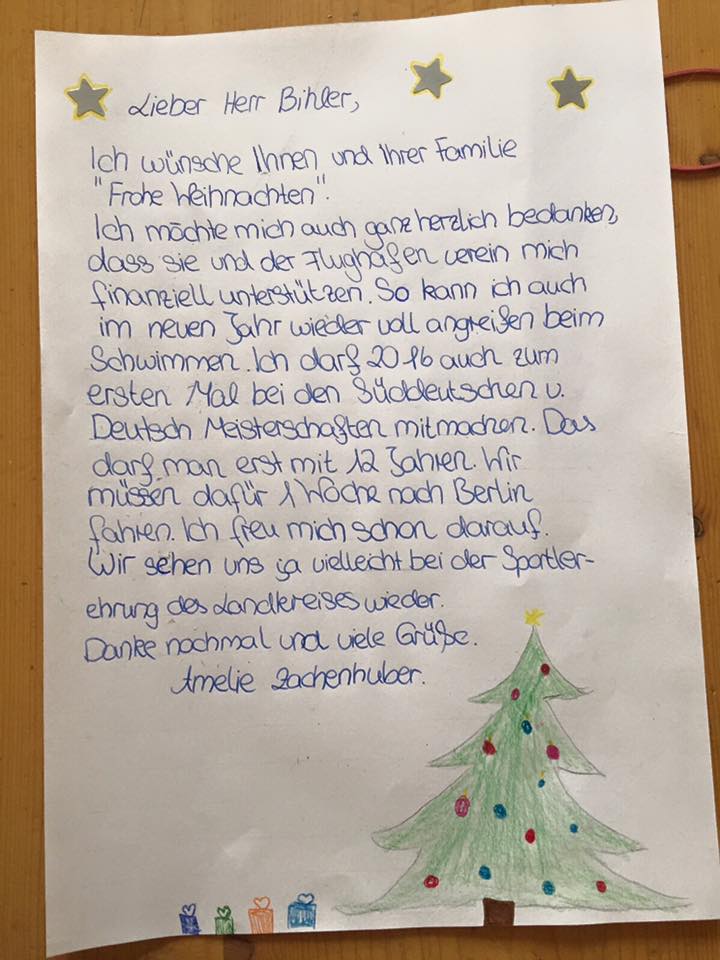 Lieber Herr Bihler,
Ich wünsche Ihnen und Ihrer Familie
"Frohe Weihnachten".
Ich möchte mich auch ganz herzlich bedanken,
dass sie und der Flughafen verein mich
finanziell unterstützen. So kann ich auch
im neuen Jahr wieder voll angreifen beim
Schwimmen. Ich darf 2016 auch zum
ersten Mal bei den Süddeutschen u.
Deutsch Meisterschaften mitmachen. Das
darf man erst mit 12 Jahren. Wir
müssen dafür 1 Woche nach Berlin
fahren. Ich freu mich schon darauf.
Wir sehen uns ja vielleicht bei der Sportler-
ehrung des Landkreises wieder.
Danke nochmal und viele Grüße.
Amelie Zachenhuber.